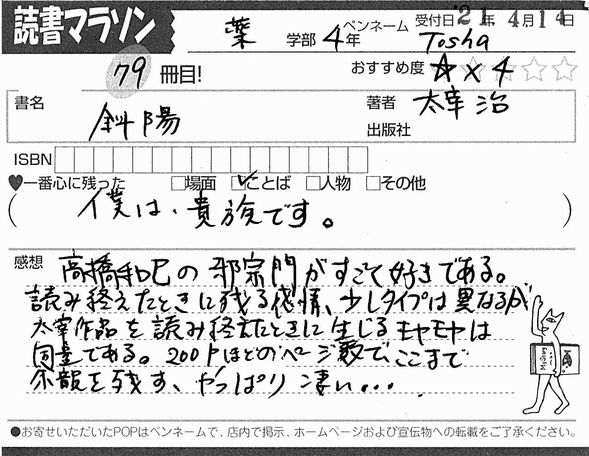 読書マラソン
薬 学部 4年
ペンネーム
Tosha
受付日'21年 4月14日
79 冊目!
おすすめ度 ☆×4 ☆☆☆
書名
斜陽
著者 太宰治
出版社
ISBN
♥一番心に残った □場面 ☑ことば □人物 □その他
(僕は、貴族です。)
感想 高橋和巳の邪宗門がすごく好きである。
読み終えたときに残る感情、少しタイプは異なるが
太宰作品を読み終えたときに生じるモヤモヤは
同量である。200Pほどのページ数で、ここまで
余韻を残す、やっぱり凄い...
●お寄せいただいたPOPはペンネームで、店内で掲示、ホームページおよび宣伝物への転載をご了承ください。